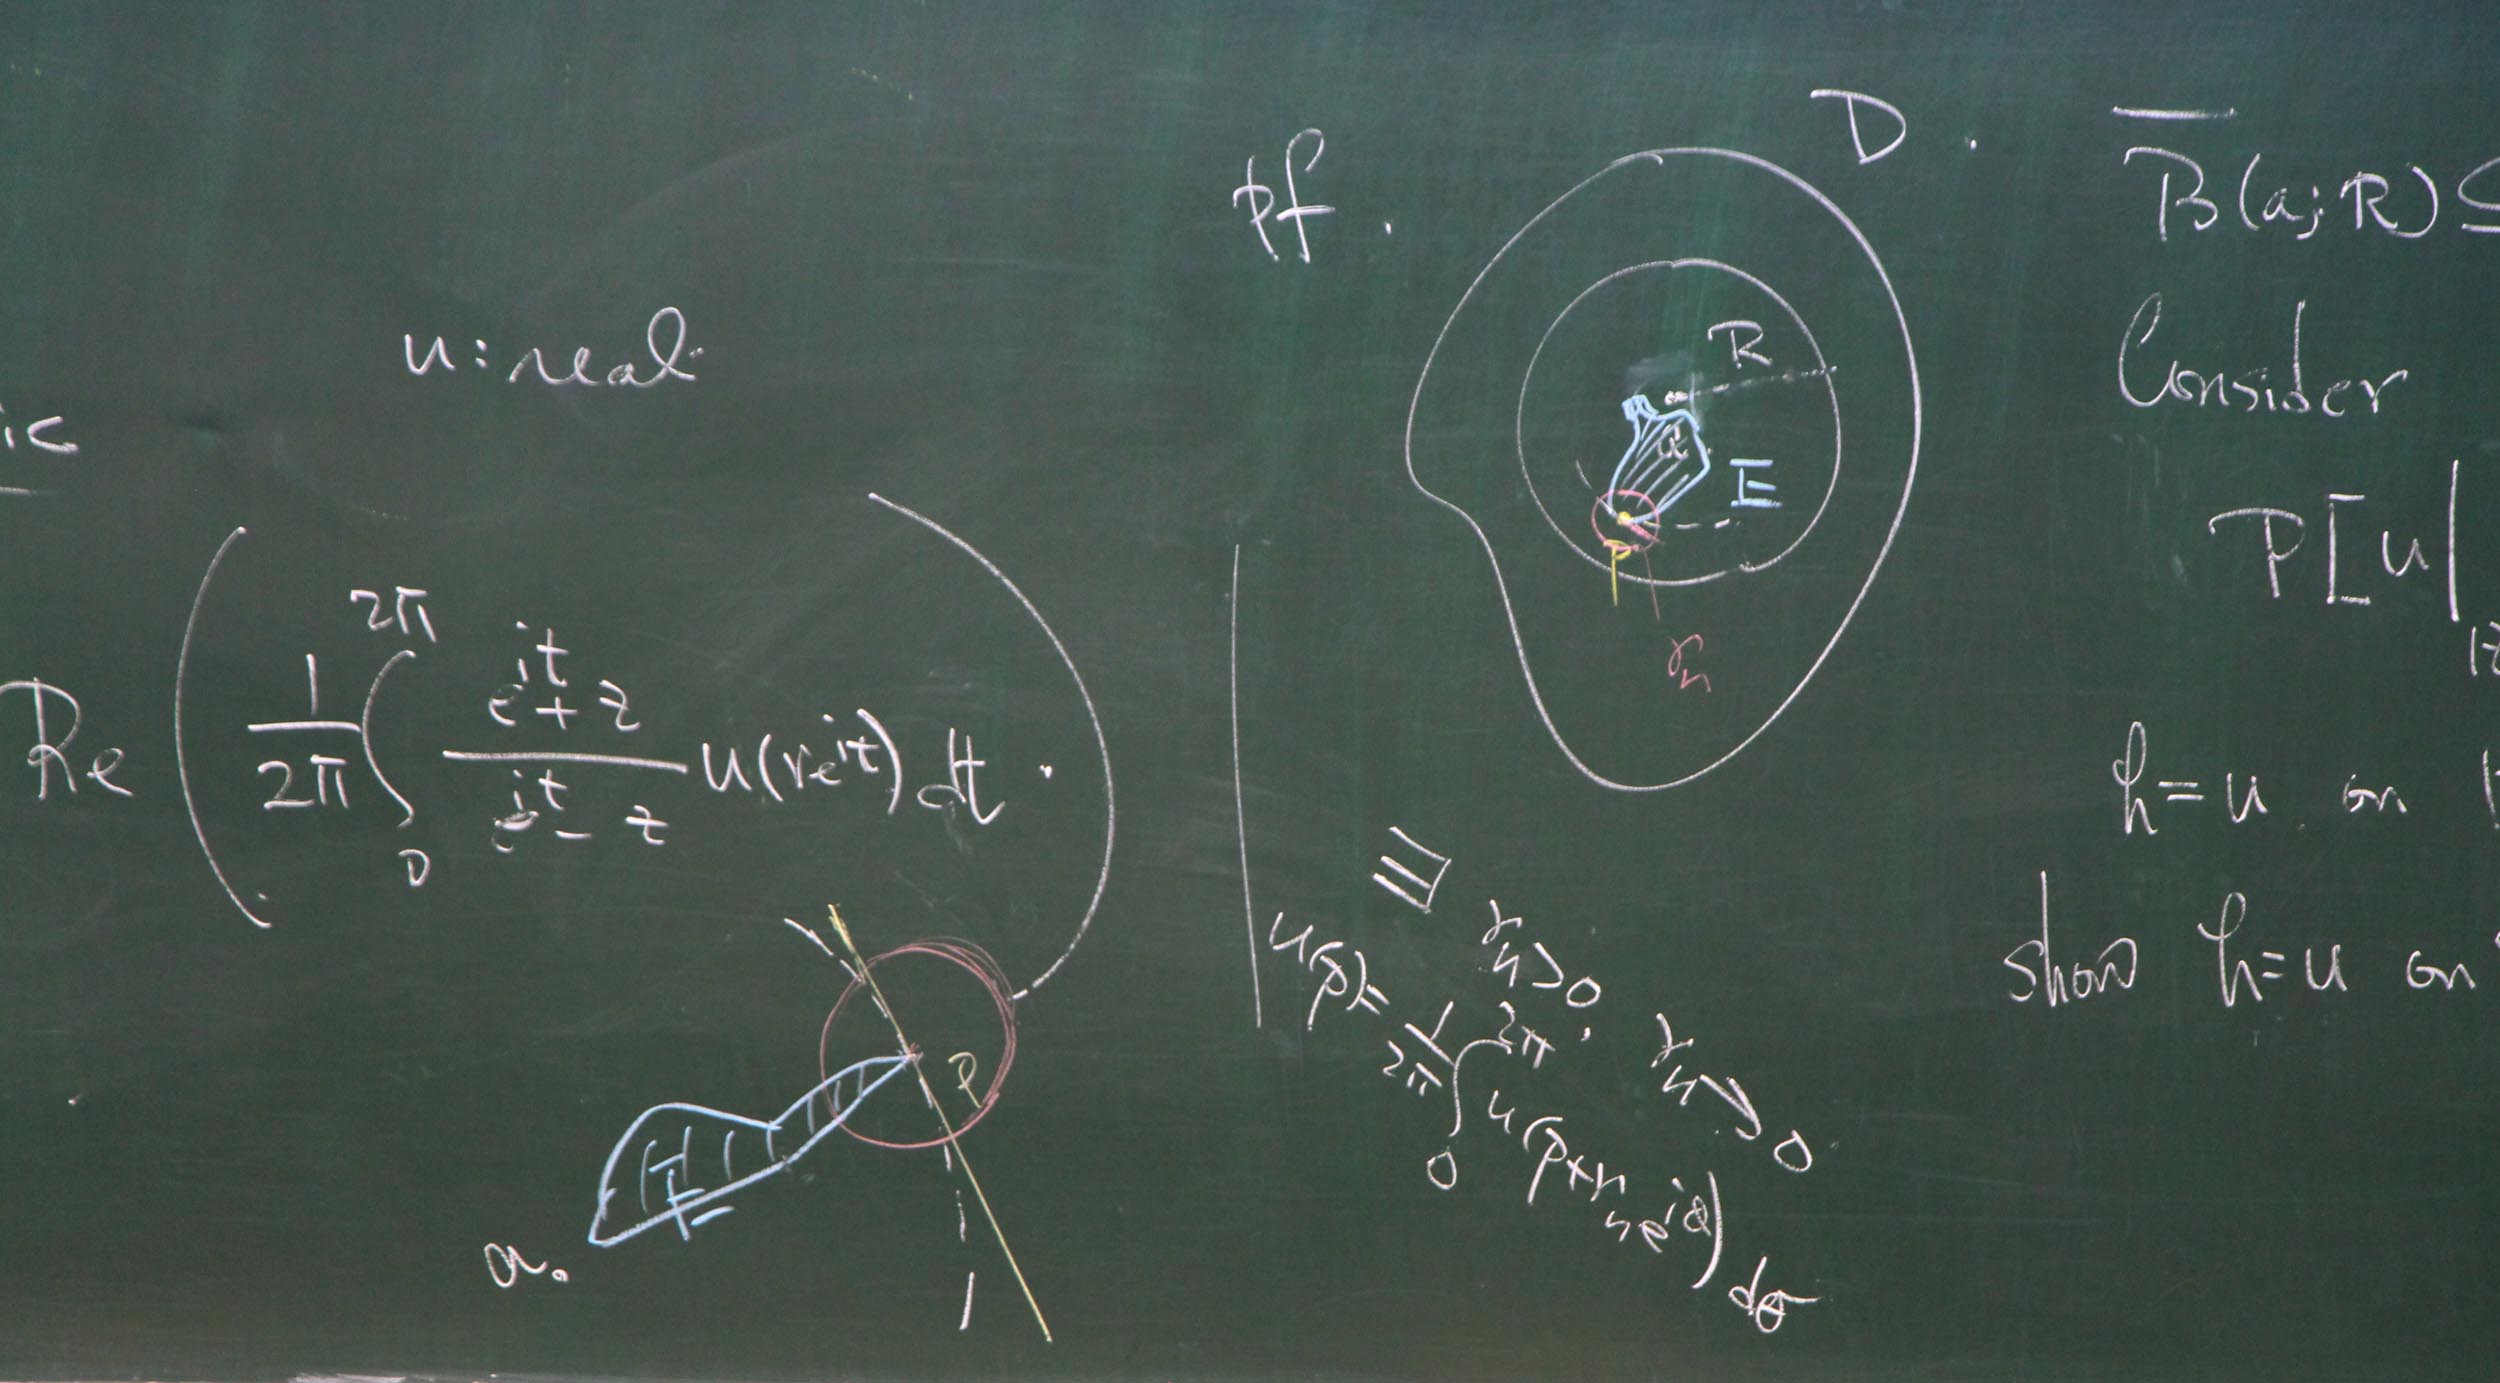 ic
u: real.
Re ( 1/2π ∫_0^{2π} (e^{it} + z)/(e^{it} - z) u(re^{it}) dt . )
P
E
a.
pf .
D .
R
a
E
P
r_n
∃ r_n > 0 , r_n ↘ 0 .
u(p) = 1/2π ∫_0^{2π} u(p + r_n e^{iθ}) dθ
\overline{B}(a; R) ⊆
Consider
P[u|
h = u on
show h = u on